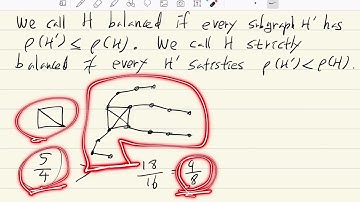 We call H balanced if every subgraph H' has
ρ(H') ≤ ρ(H). We call H strictly
balanced if every H' satisfies ρ(H') < ρ(H).
5/4
18/16 = 9/8